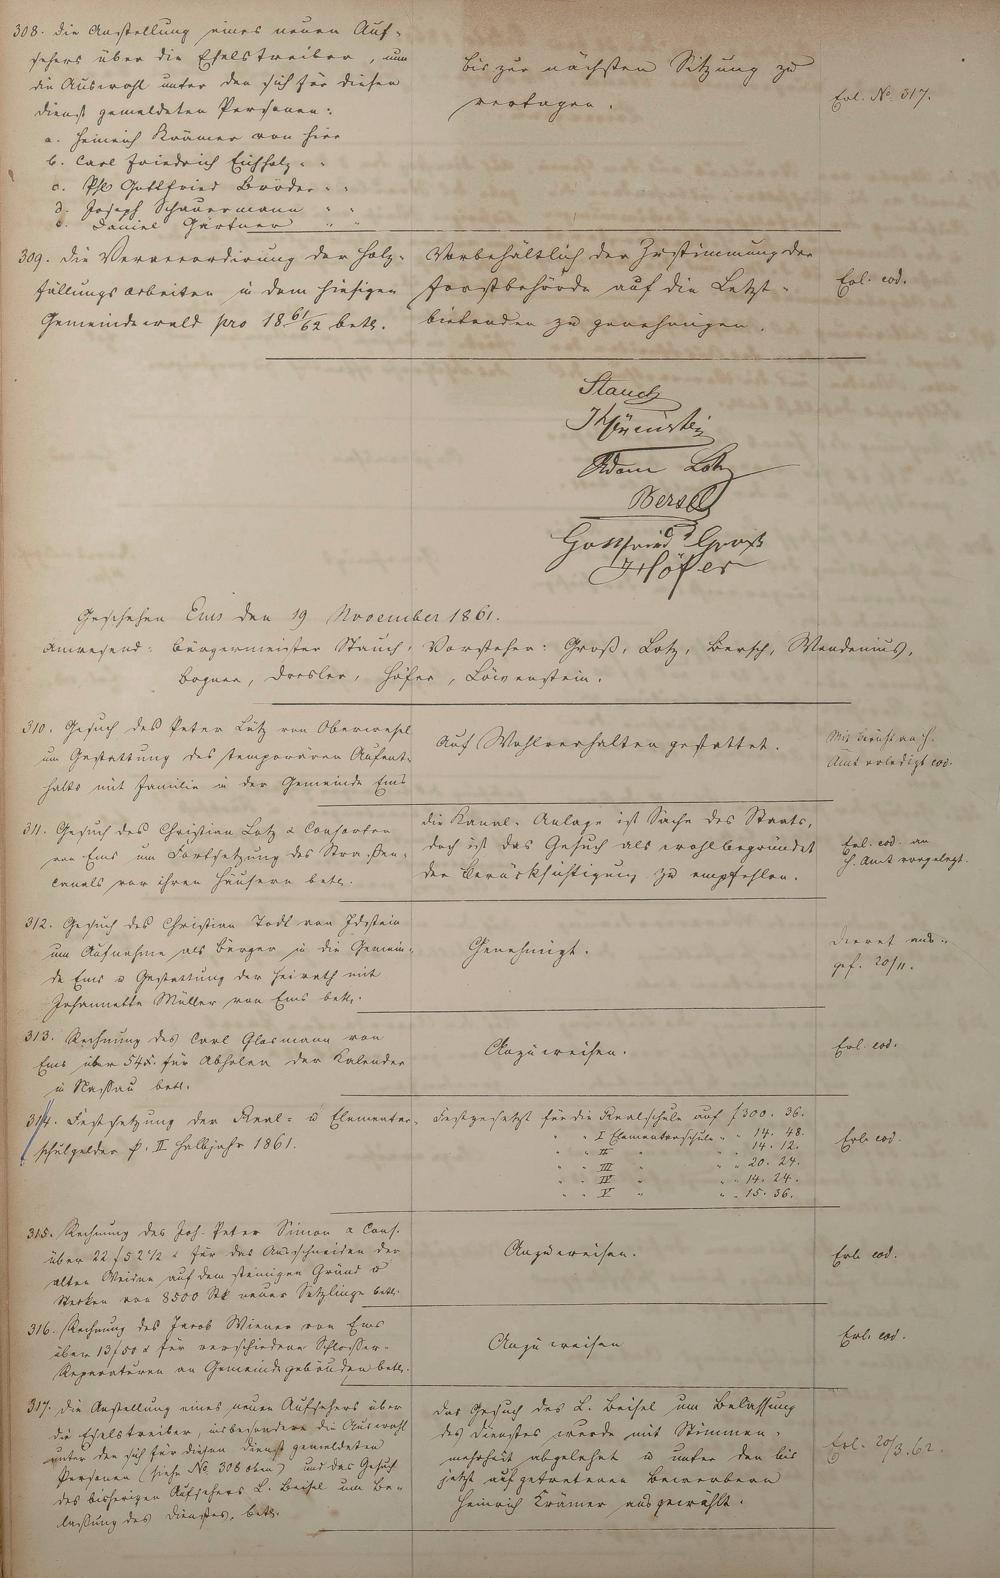 308. Die Anstellung eines neuen Auf-
sehers über die Eselstreiber, nun
die Auswahl unter den sich für diesen
Dienst gemeldeten Personen:
a. Heinrich Krämer von hier
b. Carl Friedrich Eichholz " "
c. Phl Gottfried Bröder " "
d. Joseph Schauermann " "
e. Daniel Gärtner " "
bis zur nächsten Sitzung zu
vertagen.
Erl. No 317.
309. Die Veraccordirung der Holz-
fällungsarbeiten in dem hiesigen
Gemeindewald pro 18 61/62 betr.
Vorbehältlich der Zustimmung der
Forstbehörde auf die Letzt-
bietenden zu genehmigen.
Erl. eod.
Stauch
Adam Lotz
Bersch
Gottfried Groß
Höfer
Geschehen Ems den 19 November 1861.
Anwesend: Bürgermeister Stauch, Vorsteher: Groß, Lotz, Bersch, Wendenius,
Bogner, Dresler, Höfer, Löwenstein.
310. Gesuch des Peter Lütz von Oberwesel
um Gestattung des temporären Aufent-
halts mit Familie in der Gemeinde Ems
Auf Wohlverhalten gestattet.
Mit Bericht nach
Amt erledigt eod.
311. Gesuch des Christian Lotz & Consorten
von Ems um Fortsetzung des Straßen-
canals vor ihren Häusern betr.
Die Kanal-Anlage ist Sache des Staats,
doch ist das Gesuch als wohlbegründet
der Berücksichtigung zu empfehlen.
Erl. eod. an
H. Amt vorgelegt.
312. Gesuch des Christian Todt von Idstein
um Aufnahme als Bürger in die Gemein-
de Ems u Gestattung der Heirath mit
Johannette Müller von Ems betr.
Genehmigt.
Decret aus-
gef. 20/11.
313. Rechnung des Carl Glasmann von
Ems über 54x. für Abholen der Kalender
in Nassau betr.
Anzuweisen.
Erl. eod.
314. Festsetzung der Real- u Elementar-
schulgelder p. II Halbjahr 1861.
Festgesetzt für die Realschule auf f 300. 36.
" " I Elementarschule " " 14. 48.
" " II " " " 14. 12.
" " III " " " 20. 24.
" " IV " " " 14. 24.
" " V " " " 15. 36.
Erl. eod
315. Rechnung des Joh. Peter Simon & Cons.
über 22 f 52 1/2 x für das Ausschneiden der
alten Weiden auf dem steinigen Gründ u
Stecken von 8500 Stk neuer Setzlinge betr.
Anzuweisen.
Erl. eod.
316. Rechnung des Jacob Wiener von Ems
über 13 f 50 x für verschiedene Schlosser-
Reparaturen an Gemeindegebäuden betr.
Anzuweisen
Erl. eod.
317. Die Anstellung eines neuen Aufsehers über
die Eselstreiber, insbesondere die Auswahl
unter den sich für diesen Dienst gemeldeten
Personen (siehe No. 308 oben) und das Gesuch
des bisherigen Aufsehers L. Beisel um Be-
lassung des Dienstes, betr.
Das Gesuch des L. Beisel um Belassung
des Dienstes wurde mit Stimmen-
mehrheit abgelehnt u unter den bis
jetzt aufgetretenen Bewerbern
Heinrich Krämer ausgewählt.
Erl. 20/3. 62.